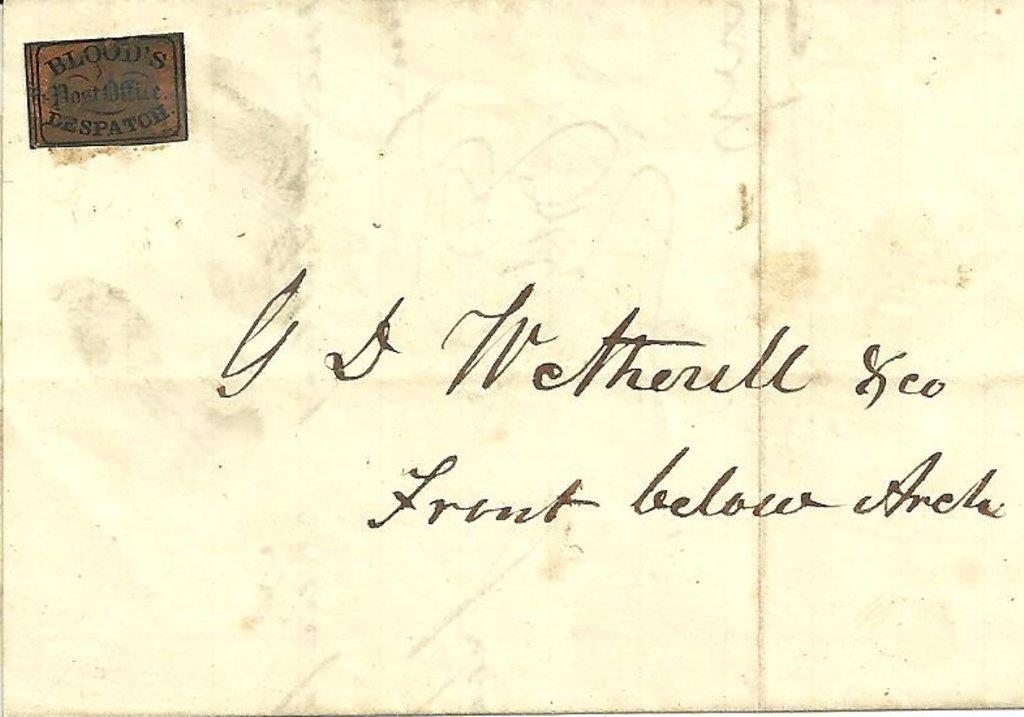 BLOOD'S
Post Office
DESPATCH.
G D Wetherill & co
Front below Arch